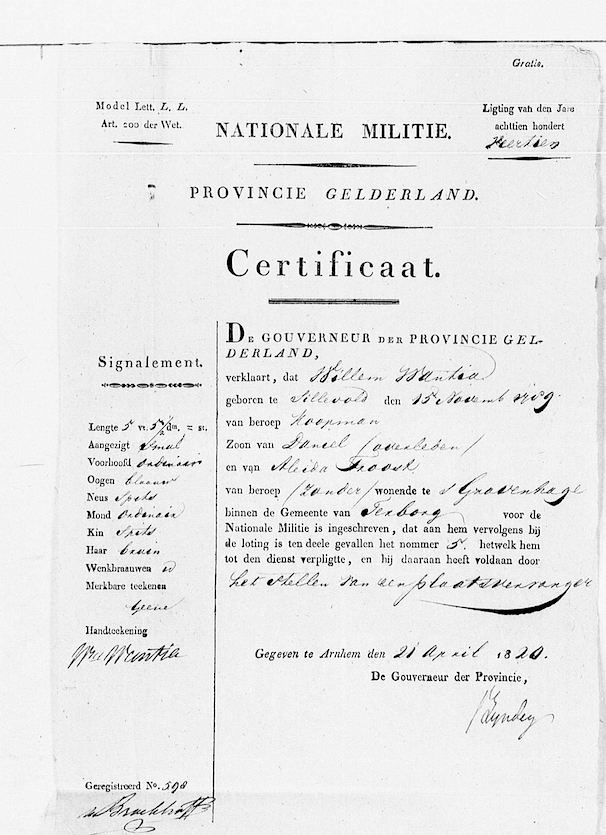 Gratis.
Model Lett. L. L.
Art. 200 der Wet.
NATIONALE MILITIE.
Ligting van den Jare
achttien hondert
Veertien
PROVINCIE GELDERLAND.
Certificaat.
Signalement.
Lengte 5 vt. 5 1/2 dm. = st.
Aangezigt Smal
Voorhoofd Ordinair
Oogen blaauw
Neus Spits
Mond Ordinair
Kin Spits
Haar bruin
Wenkbraauwen id
Merkbare teekenen
Geene
Handteekening
Wm Wantia
Geregistreerd No. 598
DE GOUVERNEUR DER PROVINCIE GEL-
DERLAND,
verklaart, dat Willem Wantia
geboren te Sillevold den 15 Novemb
van beroep Koopman
Zoon van Daniel (overleden)
en van Aleida Troost
van beroep (Zonder) wonende te s Gravenhage
binnen de Gemeente van Terborg voor de
Nationale Militie is ingeschreven, dat aan hem vervolgens bij
de loting is ten deele gevallen het nommer 5. hetwelk hem
tot den dienst verpligtte, en hij daaraan heeft voldaan door
het stellen van een plaatsvervanger
Gegeven te Arnhem den 21 April 1820.
De Gouverneur der Provincie,